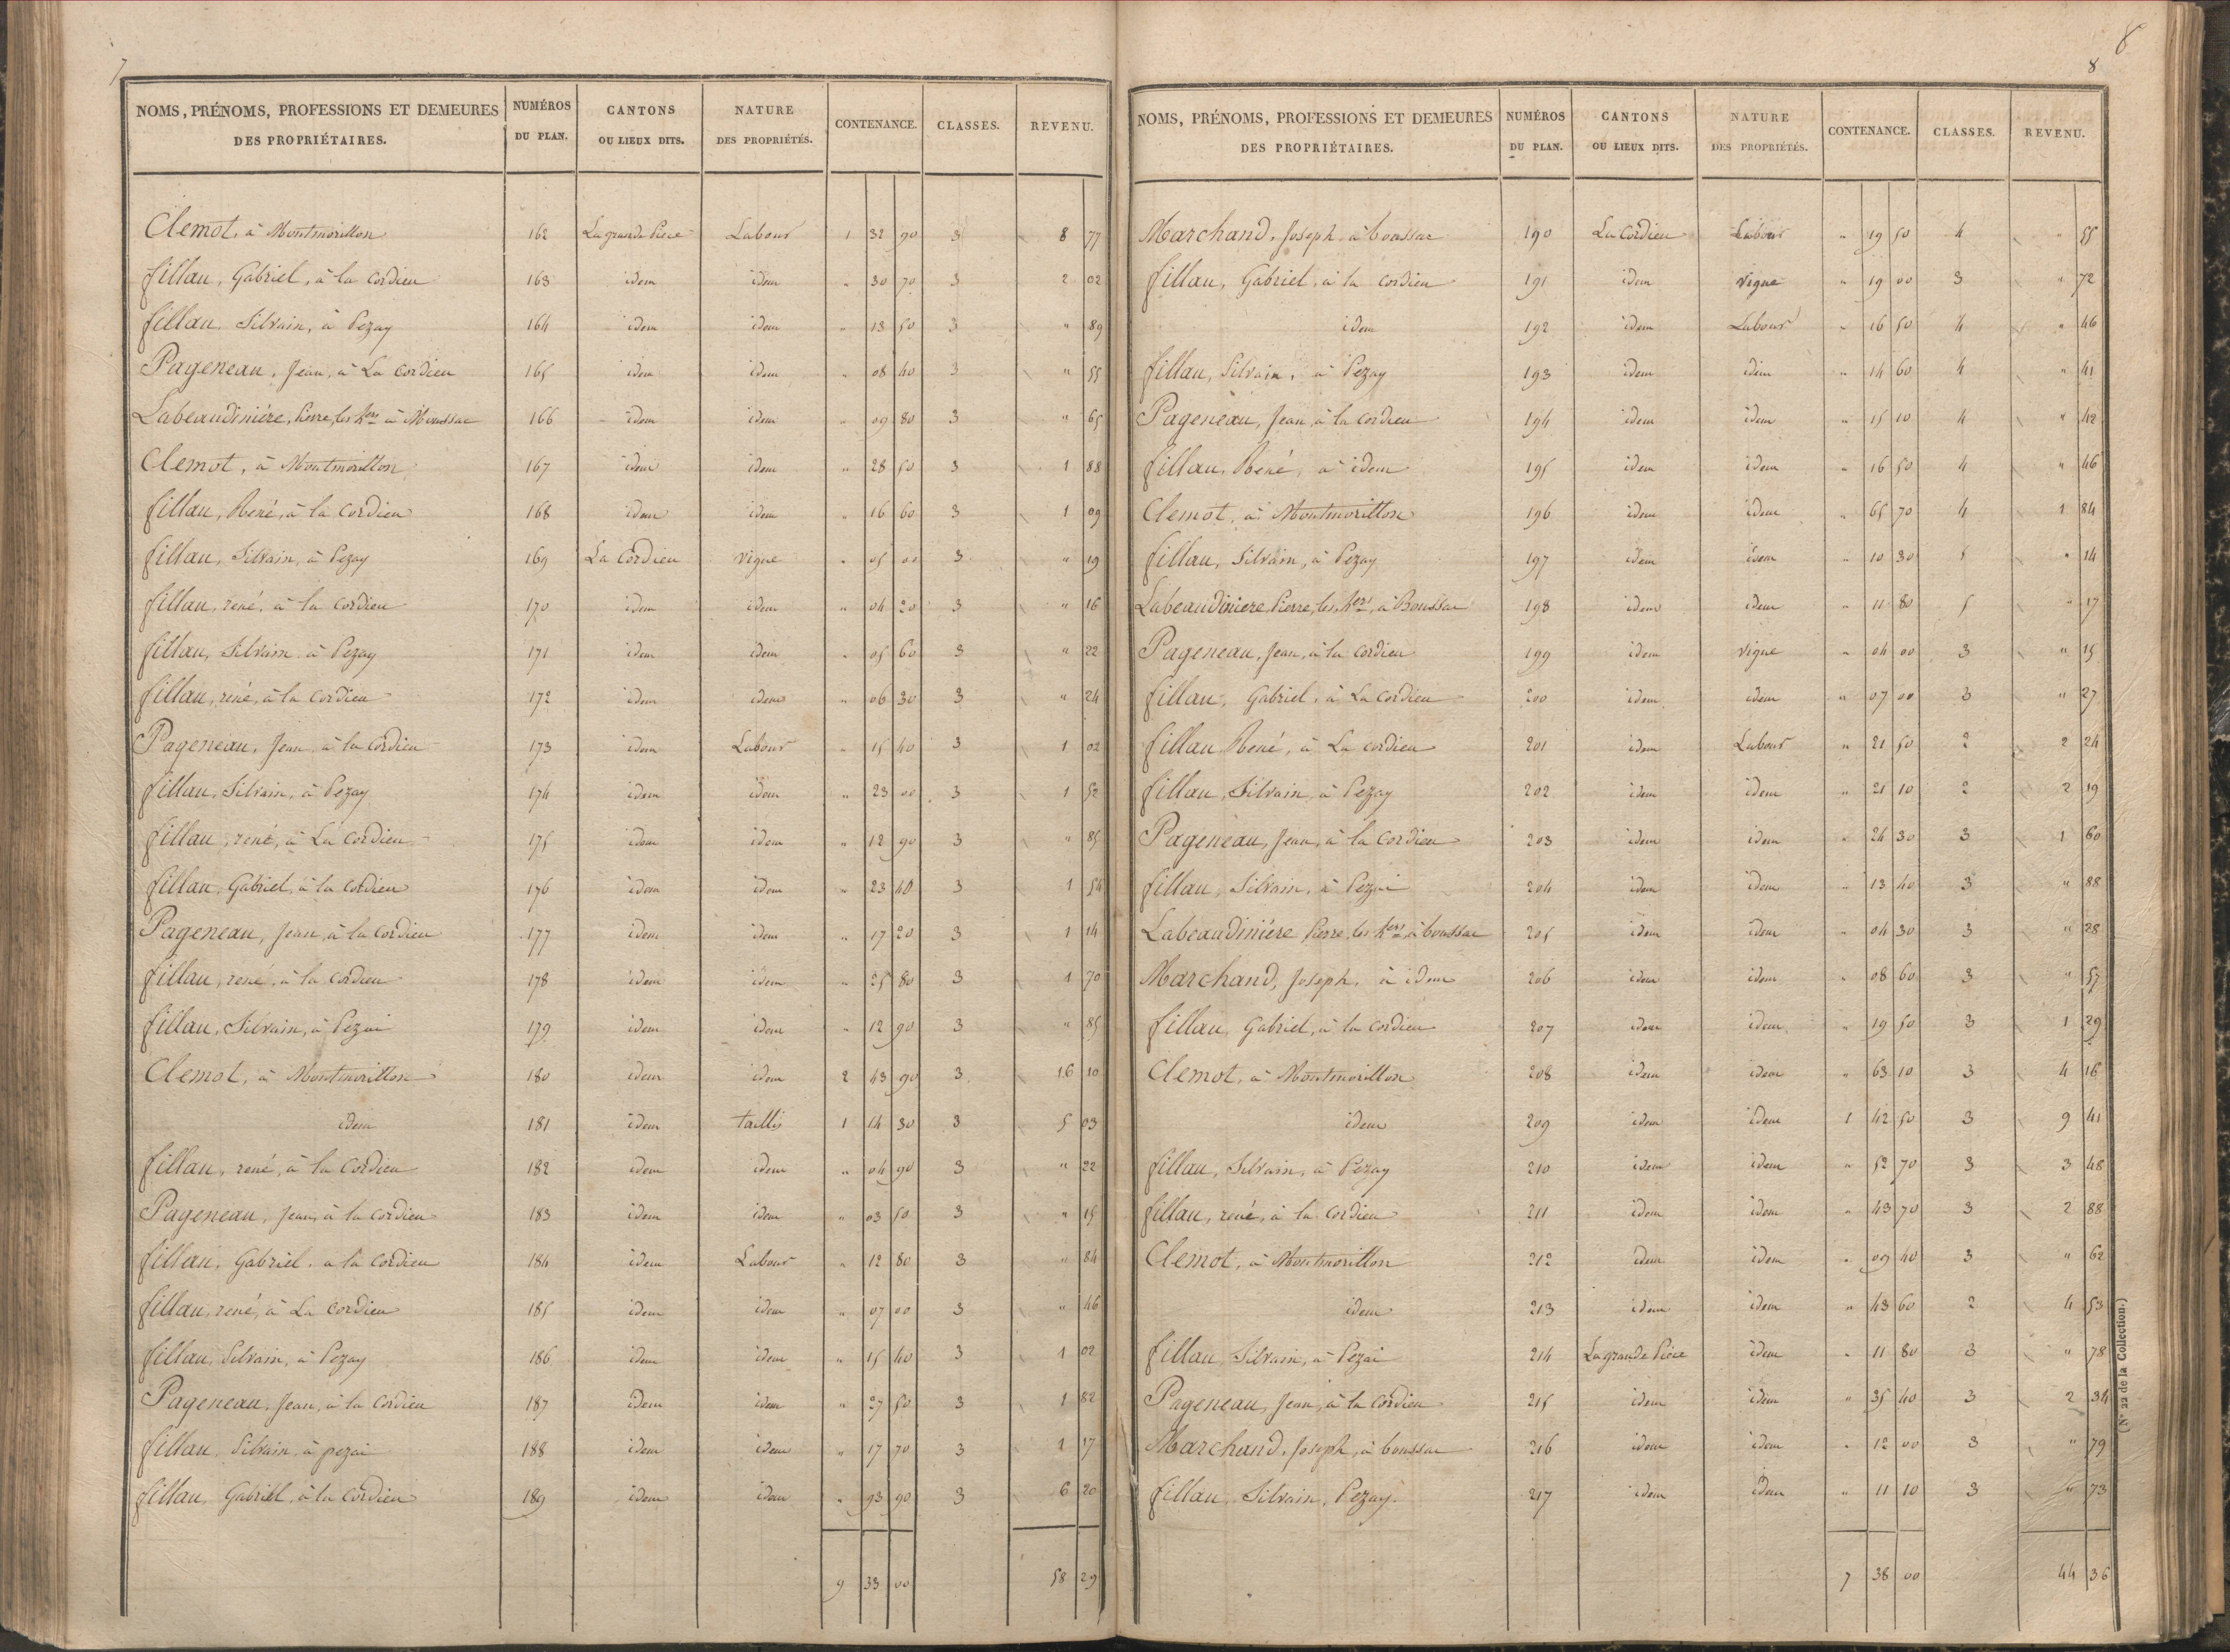 7
NOMS, PRÉNOMS, PROFESSIONS ET DEMEURES DES PROPRIÉTAIRES. NUMÉROS DU PLAN. CANTONS OU LIEUX DITS. NATURE DES PROPRIÉTÉS. CONTENANCE. CLASSES. REVENU.
Clemot, à Montmorillon 162 La grande Piece Labour 1 32 90 3 8 77
fillau, Gabriel, à la Cordieu 163 idem idem " 30 70 3 2 02
fillau, Silvain, à Pezay 164 idem idem " 13 50 3 " 89
Pageneau, Jean, à La Cordieu 165 idem idem " 08 40 3 " 55
Labeaudiniére, Pierre, les hers à Moussac 166 idem idem " 09 80 3 " 65
Clemot, à Montmorillon 167 idem idem " 28 50 3 1 88
fillau, René, à la Cordieu 168 idem idem " 16 60 3 1 09
fillau, Silvain, à Pezay 169 La Cordieu vigne " 05 00 3 " 19
fillau, rené, à la Cordieu 170 idem idem " 04 20 3 " 16
fillau, Silvain à Pezay 171 idem idem " 05 60 3 " 22
fillau, rené, à la Cordieu 172 idem idem " 06 30 3 " 24
Pageneau, Jean, à la Cordieu 173 idem Labour " 15 40 3 1 02
fillau, Silvain, à Pezay 174 idem idem " 23 00 3 1 52
fillau, rené, à La Cordieu 175 idem idem " 12 90 3 " 85
fillau, Gabriel, à la Cordieu 176 idem idem " 23 40 3 1 54
Pageneau, Jean, à la Cordieu 177 idem idem " 17 20 3 1 14
fillau, rené, à la Cordieu 178 idem idem " 25 80 3 1 70
fillau, Silvain, à Pezai 179 idem idem " 12 90 3 " 85
Clemot, à Montmorillon 180 idem idem 2 43 90 3 16 10
idem 181 idem taillis 1 14 30 3 5 03
fillau, rené, à la Cordieu 182 idem idem " 04 90 3 " 22
Pageneau, Jean, à la Cordieu 183 idem idem " 03 50 3 " 15
fillau, Gabriel, a la Cordieu 184 idem Labour " 12 80 3 " 84
fillau, rené, à La Cordieu 185 idem idem " 07 00 3 " 46
fillau, Silvain, à Pezay 186 idem idem " 15 40 3 1 02
Pageneau, Jean, à la Cordieu 187 idem idem " 27 50 3 1 82
fillau, Silvain, à pezai 188 idem idem " 17 70 3 1 17
fillau, Gabriel, à la Cordieu 189 idem idem " 93 90 3 6 20
9 33 00 58 29
8
8
NOMS, PRÉNOMS, PROFESSIONS ET DEMEURES DES PROPRIÉTAIRES. NUMÉROS DU PLAN. CANTONS OU LIEUX DITS. NATURE DES PROPRIÉTÉS. CONTENANCE. CLASSES. REVENU.
Marchand, Joseph, à boussac 190 La Cordieu Labour " 19 50 4 " 55
fillau, Gabriel, à la Cordieu 191 idem vigne " 19 00 3 " 72
idem 192 idem Labour " 16 50 4 " 46
fillau, Silvain, à Pezay 193 idem idem " 14 60 4 " 41
Pageneau, Jean, à la Cordieu 194 idem idem " 15 10 4 " 42
fillau, René, à idem 195 idem idem " 16 50 4 " 46
Clemot, à Montmorillon 196 idem idem " 65 70 4 1 84
fillau, Silvain, à Pezay 197 idem idem " 10 30 5 " 14
Labeaudiniere, Pierre, les hers, à Boussac 198 idem idem " 11 80 5 " 17
Pageneau, Jean, à la Cordieu 199 idem vigne " 04 00 3 " 15
fillau, Gabriel, à La Cordieu 200 idem idem " 07 00 3 " 27
fillau René, à La cordieu 201 idem Labour " 21 50 2 2 24
fillau, Silvain, à Pezay 202 idem idem " 21 10 2 2 19
Pageneau, Jean, à la Cordieu 203 idem idem " 24 30 3 1 60
fillau, Silvain, à Pezai 204 idem idem " 13 40 3 " 88
Labeaudiniére Pierre, les hers à boussac 205 idem idem " 04 30 3 " 28
Marchand, Joseph, à idem 206 idem idem " 08 60 3 " 57
fillau, Gabriel, à la Cordieu 207 idem idem " 19 50 3 1 29
Clemot, à Montmorillon 208 idem idem " 63 10 3 4 16
idem 209 idem idem 1 42 50 3 9 41
fillau, Silvain, à Pezay 210 idem idem " 52 70 3 3 48
fillau, rené, à la Cordieu 211 idem idem " 43 70 3 2 88
Clemot, à Montmorillon 212 idem idem " 09 40 3 " 62
idem 213 idem idem " 43 60 2 4 53
fillau, Silvain, à Pezai 214 La grande Piéce idem " 11 80 3 " 78
Pageneau, Jean, à la Cordieu 215 idem idem " 35 40 3 2 34
Marchand, Joseph, à boussac 216 idem idem " 12 00 3 " 79
fillau, Silvain, Pezay. 217 idem idem " 11 10 3 " 73
7 38 00 44 36
(N° 22 de la Collection.)